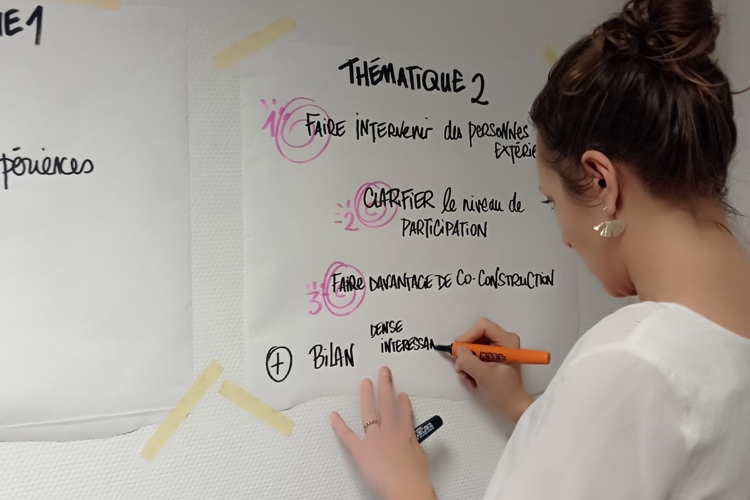 IE 1
périences
THÉMATIQUE 2
1 FAIRE INTERVENIR des PERSONNES
EXTÉRIE
2 CLARIFIER le niveau de
PARTICIPATION
3 FAIRE DAVANTAGE DE CO-CONSTRUCTION
+ BILAN
DENSE
INTERESSAN